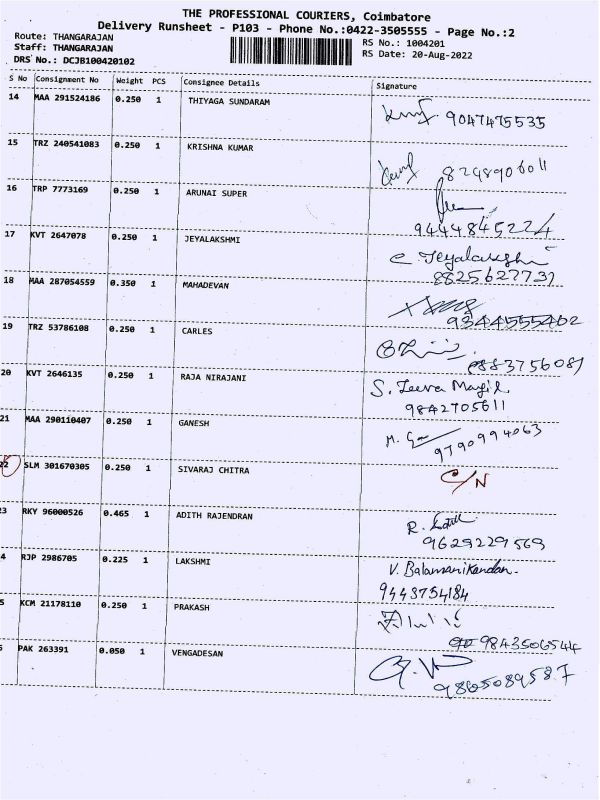 THE PROFESSIONAL COURIERS, Coimbatore
Delivery Runsheet - P103 - Phone No.:0422-3505555 - Page No.:2
Route: THANGARAJAN
RS No.: 1004201
Staff: THANGARAJAN
RS Date: 20-Aug-2022
DRS No.: DCJB100420102
S No Consignment No Weight PCS Consignee Details Signature
14 MAA 291524186 0.250 1 THIYAGA SUNDARAM
9047475535
15 TRZ 240541083 0.250 1 KRISHNA KUMAR
8248906011
16 TRP 7773169 0.250 1 ARUNAI SUPER
9444845224
17 KVT 2647078 0.250 1 JEYALAKSHMI
C Jeyalakshmi
8825627731
18 MAA 287054559 0.350 1 MAHADEVAN
9344555402
19 TRZ 53786108 0.250 1 CARLES
8883756081
20 KVT 2646135 0.250 1 RAJA NIRAJANI
S. Jeeva Magil
9842705611
21 MAA 290110407 0.250 1 GANESH
9790994063
22 SLM 301670305 0.250 1 SIVARAJ CHITRA
C/N
3 RKY 96000526 0.465 1 ADITH RAJENDRAN
9629229569
4 RJP 2986705 0.225 1 LAKSHMI
V. Balamanikandan.
9443754184
5 KCM 21178110 0.250 1 PRAKASH
9843506544
PAK 263391 0.050 1 VENGADESAN
9865089587